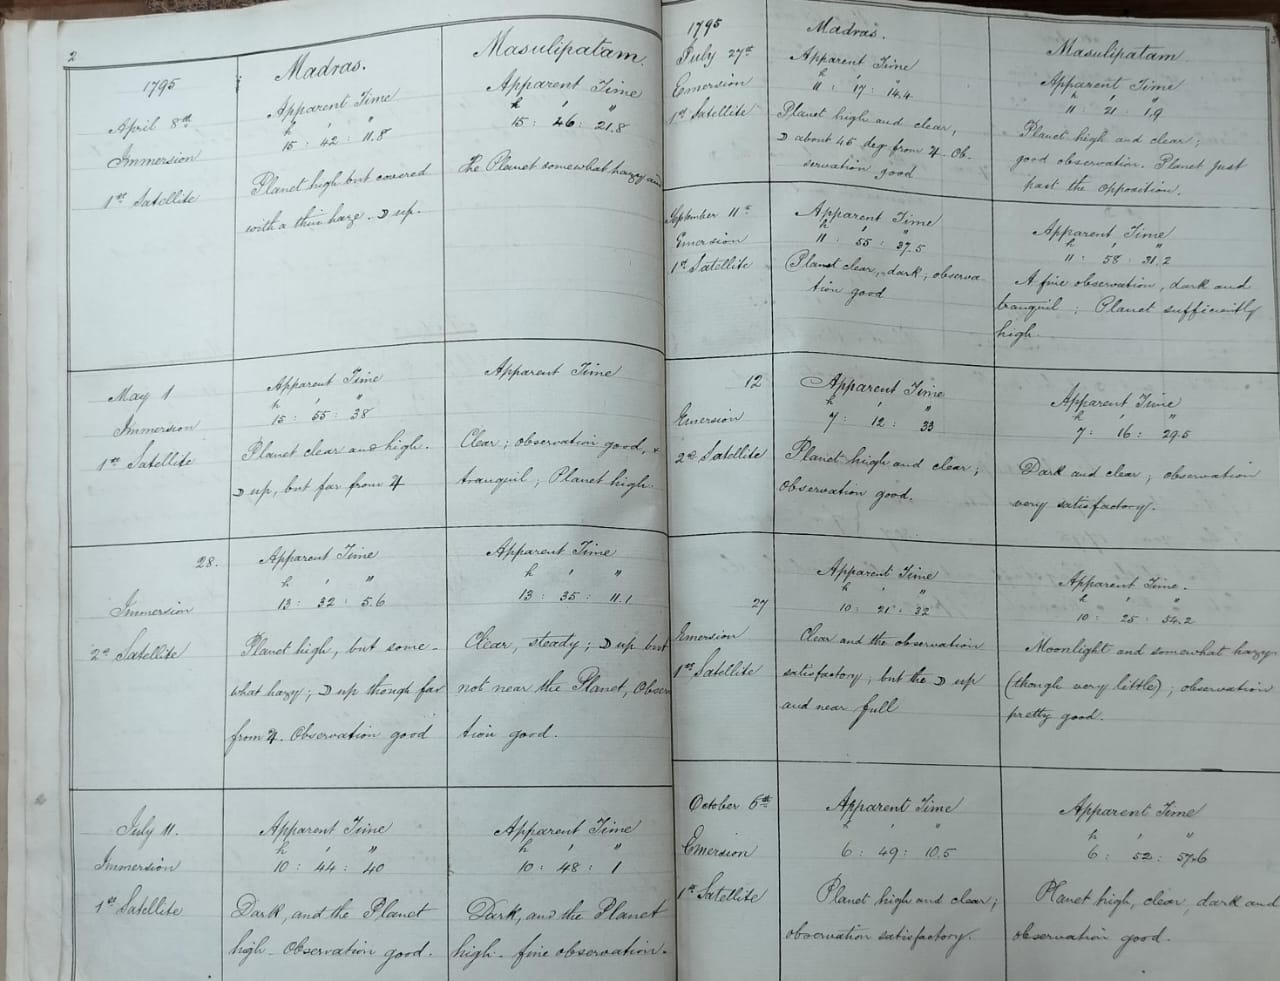 2
1795
Madras.
Masulipatam.
April 8th
Apparent Time
h ′ ″
15 : 42 : 11.8
Apparent Time
h ′ ″
15 : 46 : 21.8
Immersion
1st Satellite
Planet high but covered
with a thin haze. ☽ up.
The Planet somewhat hazy and
May 1
Immersion
1st Satellite
Apparent Time
h ′ ″
15 : 55 : 38
Planet clear and high.
☽ up, but far from ♃
Apparent Time
Clear ; observation good, &
tranquil ; Planet high.
28.
Immersion
2d Satellite
Apparent Time
h ′ ″
13 : 32 : 5.6
Planet high, but some-
what hazy ; ☽ up though far
from ♃. Observation good
Apparent Time
h ′ ″
13 : 35 : 11.1
Clear, steady ; ☽ up but
not near the Planet, Observ
tion good.
July 11.
Immersion
1st Satellite
Apparent Time
h ′ ″
10 : 44 : 40
Dark, and the Planet
high. Observation good.
Apparent Time
h ′ ″
10 : 48 : 1
Dark, and the Planet
high. fine observation.
1795
Madras.
Masulipatam
July 27th
Emersion
1st Satellite
Apparent Time
h ′ ″
11 : 17 : 14.4
Planet high and clear,
☽ about 45 deg from ♃. Ob-
servation good
Apparent Time
11 : 21 : 1.9
Planet high and clear ;
good observation. Planet just
past the opposition.
September 11th
Emersion
1st Satellite
Apparent Time
h ′ ″
11 : 55 : 37.5
Planet clear, dark ; observa
tion good
Apparent Time
h ′ ″
11 : 58 : 31.2
A fine observation, dark and
tranquil ; Planet sufficiently
high.
12
Emersion
2d Satellite
Apparent Time
h ′ ″
7 : 12 : 33
Planet high and clear ;
Observation good.
Apparent Time
h ′ ″
7 : 16 : 29.5
Dark and clear ; observation
very satisfactory.
27
Emersion
1st Satellite
Apparent Time
h ′ ″
10 : 21 : 32
Clear and the observation
satisfactory ; but the ☽ up
and near full
Apparent Time.
h ′ ″
10 : 25 : 54.2
Moonlight and somewhat hazy
(though very little) ; observation
pretty good.
October 6th
Emersion
1st Satellite
Apparent Time
h ′ ″
6 : 49 : 10.5
Planet high and clear ;
observation satisfactory.
Apparent Time
h ′ ″
6 : 52 : 57.6
Planet high, clear, dark and
observation good.